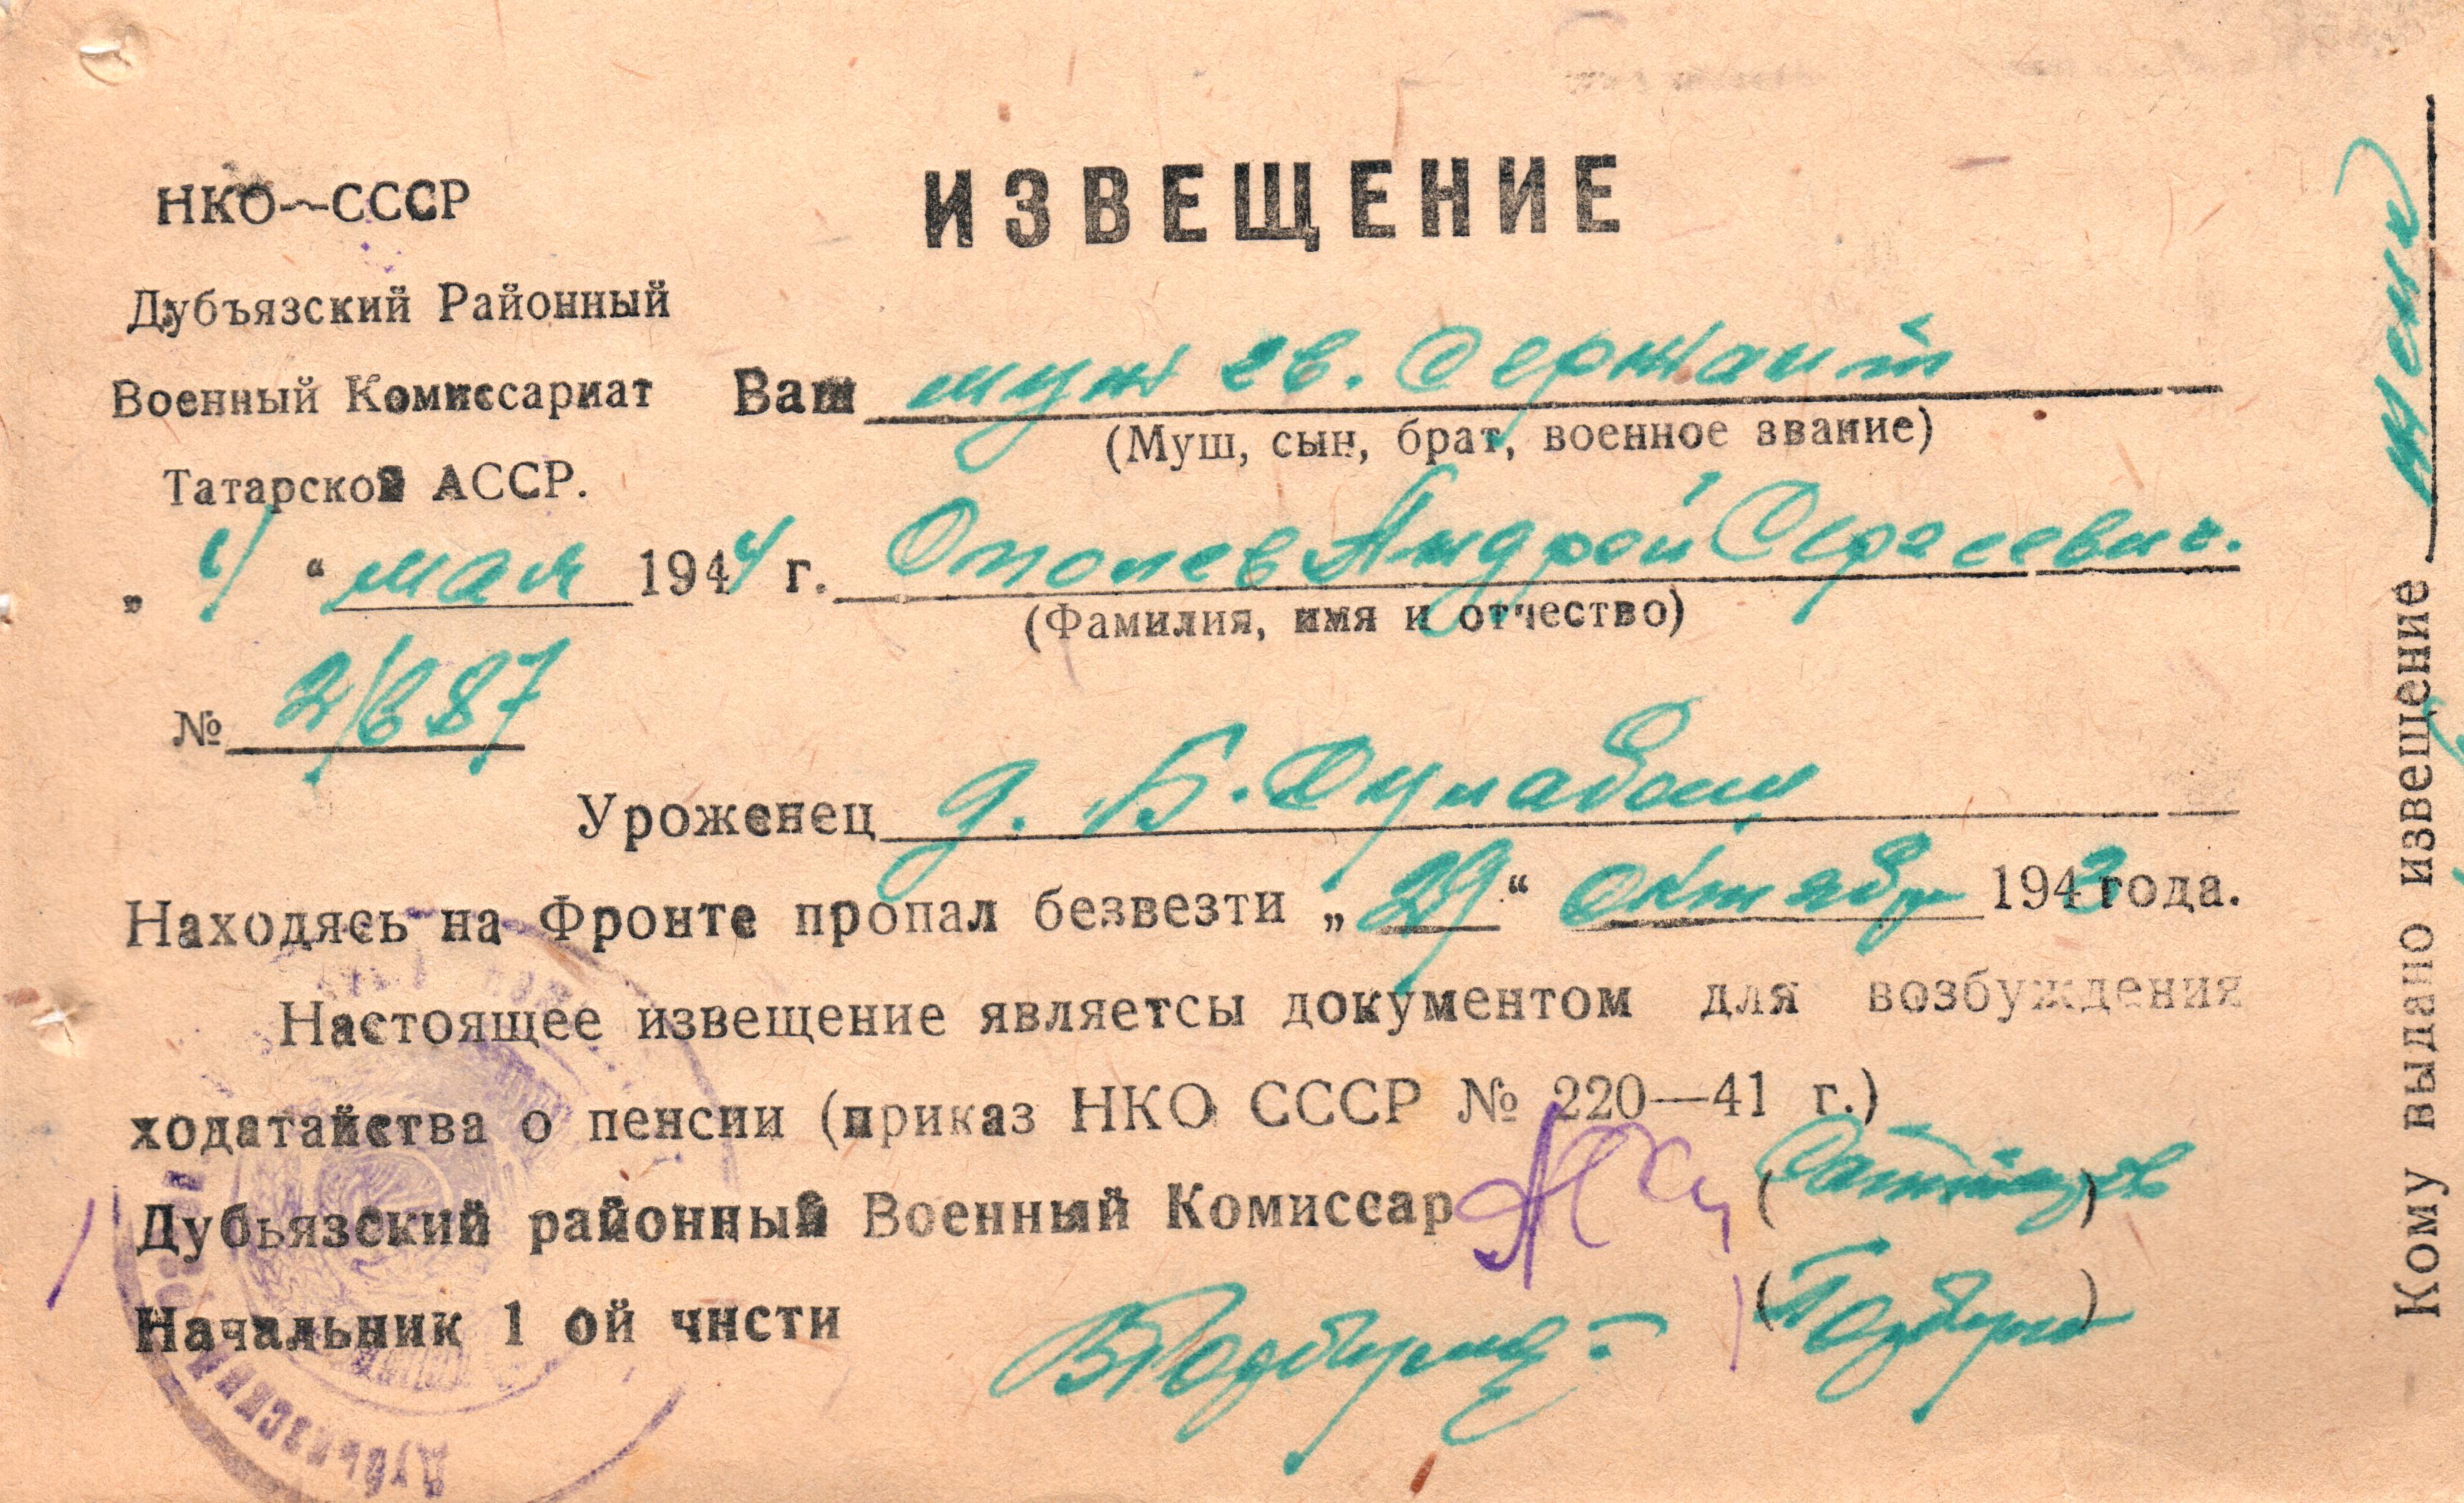 НКО—СССР
ИЗВЕЩЕНИЕ
Дубъязский Районный
Военный Комиссариат
Ваш муж гв. Сержант
(Муш, сын, брат, военное звание)
Татарской АССР.
„ “ мая 1944 г. Андрей Сергеевич.
(Фамилия, имя и отчество)
№ 2/687
Уроженец д. Б.
Находясь на Фронте пропал безвезти „29“ октября 1943 года.
Настоящее извещение являетсы документом для возбуждения
ходатайства о пенсии (приказ НКО СССР № 220—41 г.)
Дубьязский районный Военный Комиссар ( )
Начальник 1 ой чисти ( )
Кому выдано извещение жене
Дубьязский